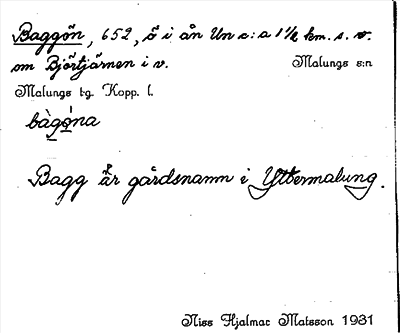 Baggön, 652, ö i ån Un c:a 1½ km. s. v.
om Björtjärnen i v. Malungs s:n
Malungs tg. Kopp. l.
bàgǫ́na
Bagg är gårdsnamn i Yttermalung.
Niss Hjalmar Matsson 1931